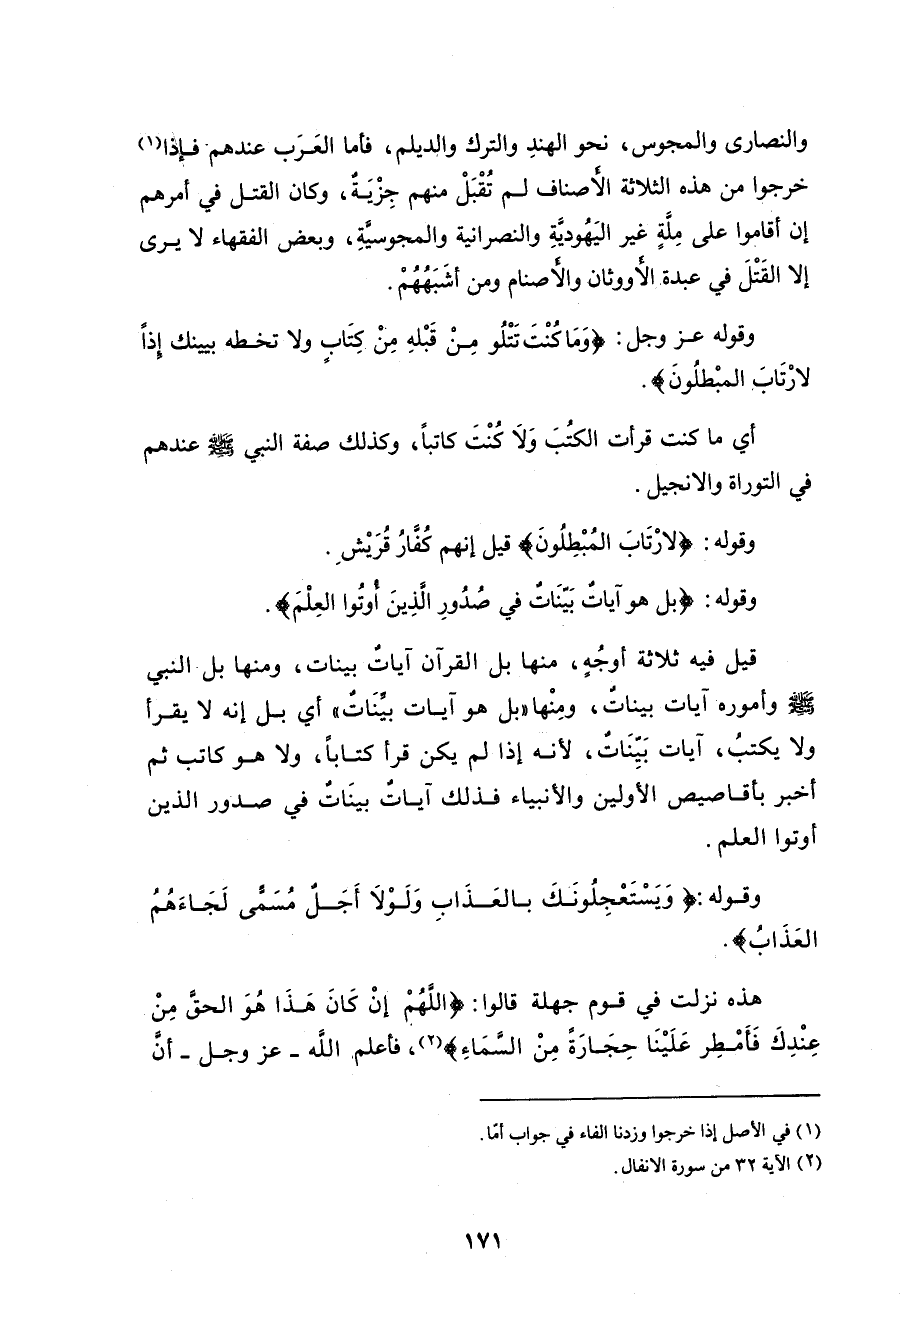 والنصارى والمجوس، نحو الهندِ والترك والديلم، فأما العَـرَب عندهم فـإذا(١)
خرجوا من هذه الثلاثة الأَصناف لـم تُقْبَلْ منهم جِزْيَـةٌ، وكان القتـل في أمرهم
إن أقاموا على مِلَّةٍ غير اليَهُوديَّةِ والنصرانية والمجوسيَّةِ، وبعض الفقهاء لا يـرى
إلا القَتْلَ في عبدة الأَووثان والأَصنام ومن أشبَهُهُمْ.
وقوله عـز وجل: ﴿وَمَا كُنْتَ تَتْلُو مِـنْ قَبْلهِ مِنْ كِتَابٍ ولا تخـطه بيينك إِذاً
لارْتَابَ المبْطلُونَ﴾.
أي ما كنت قرأت الكتُبَ وَلَا كُنْتَ كاتباً، وكذلك صفة النبي ﷺ عندهم
في التوراة والانجيل.
وقوله: ﴿لارْتَابَ المُبْطِلُونَ﴾ قيل إنهم كُفَّارُ قُرَيْشٍ.
وقوله: ﴿بل هو آياتٌ بَيِّنَاتٌ في صُدُورِ الَّذِينَ أُوتُوا العِلْمَ﴾.
قيل فيه ثلاثة أوجُهٍ، منها بل القرآن آياتٌ بينات، ومنها بل النبي
ﷺ وأموره آيات بيناتٌ، ومِنْها «بل هو آيـات بيِّنَاتٌ» أي بـل إنه لا يقـرأ
ولا يكتبُ، آيات بَيِّنَاتٌ، لأنـه إذا لم يكن قرأ كتـاباً، ولا هـو كاتب ثم
أخبر بأقـاصيص الأولين والأنبياء فـذلك آيـاتٌ بينَاتٌ في صـدور الذين
أوتوا العلم.
وقـوله: ﴿وَيَسْتَعْجِلُونَـكَ بـالعَـذَابِ وَلَـوْلَا أَجَـلٌ مُسَمًّى لَجَـاءَهُمُ
العَذَابُ﴾.
هذه نزلت في قـوم جهلة قالوا: ﴿اللَّهُمْ إنْ كَانَ هَـذَا هُوَ الحقَّ مِنْ
عِنْدِكَ فَأَمْـطِر عَلَيْنَا حِجَـارَةً مِنْ السَّمَاءِ﴾(٢)، فأعلم اللَّه ـ عز وجـل ـ أنَّ
(١) في الأصل إذا خرجوا وزدنا الفاء في جواب أمّا.
(٢) الآية ٣٢ من سورة الانفال.
١٧١